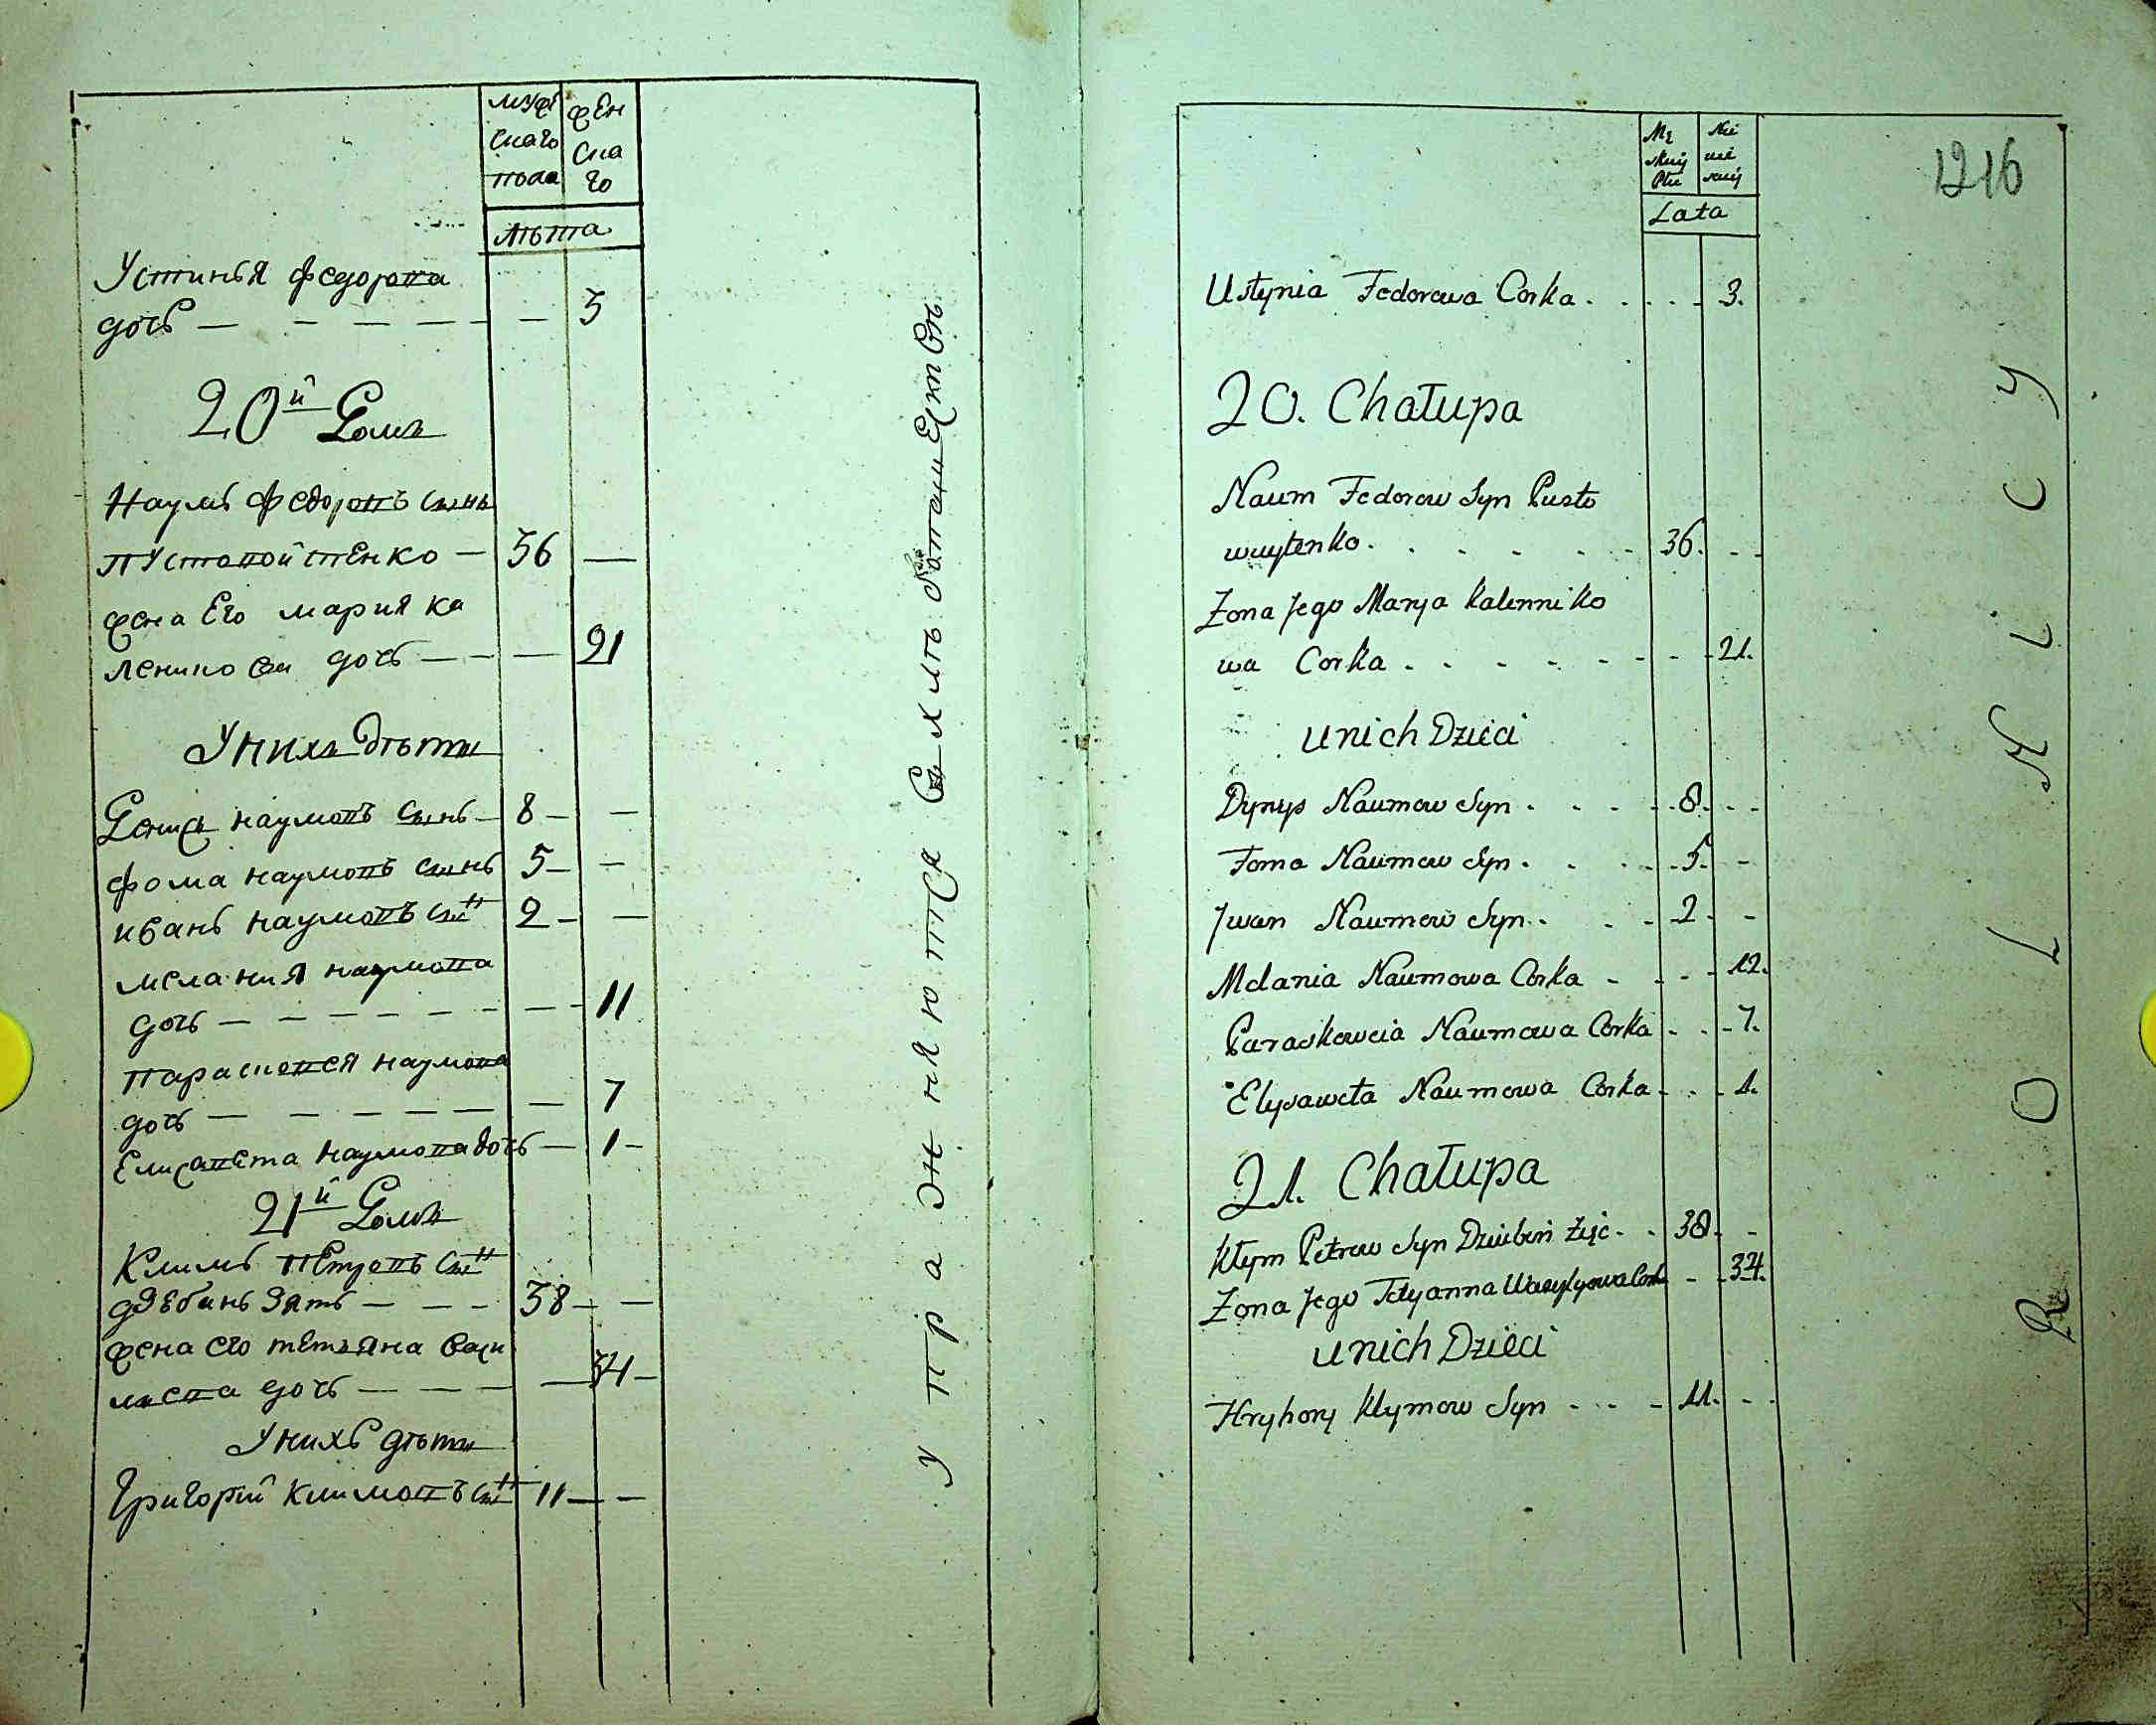 мужескаго пола
женскаго
лѣта
Устинья федорова
дочь — — — — — — 3
20й Домъ
Наумъ Федоровъ сынъ
пустовойтенко — 36 —
жена Его мария ка
леникова дочь — — — 21
У нихъ дѣти
Денисъ наумовъ сынъ — 8 — —
фома наумовъ сынъ 5 — —
иванъ наумовъ сынъ 2 — —
мелания наумова
дочь — — — — — — — 11
параскевея наумова
дочь — — — — — — — 7
Елисавета наумова дочь — 1 —
21й Домъ
Климъ петровъ сынъ
дзебинь зять — — — 38 — —
жена его тетьяна васи
лиева дочь — — — — 34 —
У нихъ дѣти
Григорій климовъ сынъ 11 — —
упражняются въ хлѣбопашествѣ
1216
Męskij Płci
Niewieskij
Lata
Ustynia Fedorowa Corka . . . . . 3.
20. Chałupa
Naum Fedorow Syn Pusto
wuytenko . . . . . . 36. - -
Zona Jego Marya Kalenniko
wa Corka . . . . . . . . 21.
U nich Dzieci
Dynys Naumow Syn . . . . . 8. - -
Foma Naumow Syn . . . . . 5. -
Jwan Naumow Syn . . . . 2. -
Melania Naumowa Corka - . . - 12.
Paraskeweia Naumowa Corka - . - 7.
Elysaweta Naumowa Corka - . - 1.
21. Chałupa
Kłym Petrow Syn Dziubin Zięc . . 38. -
Zona Jego Tetyanna Wasylyowa Corka - - 34.
U nich Dzieci
Hryhory Klymow Syn - . . - 11. - .
ROLNICY